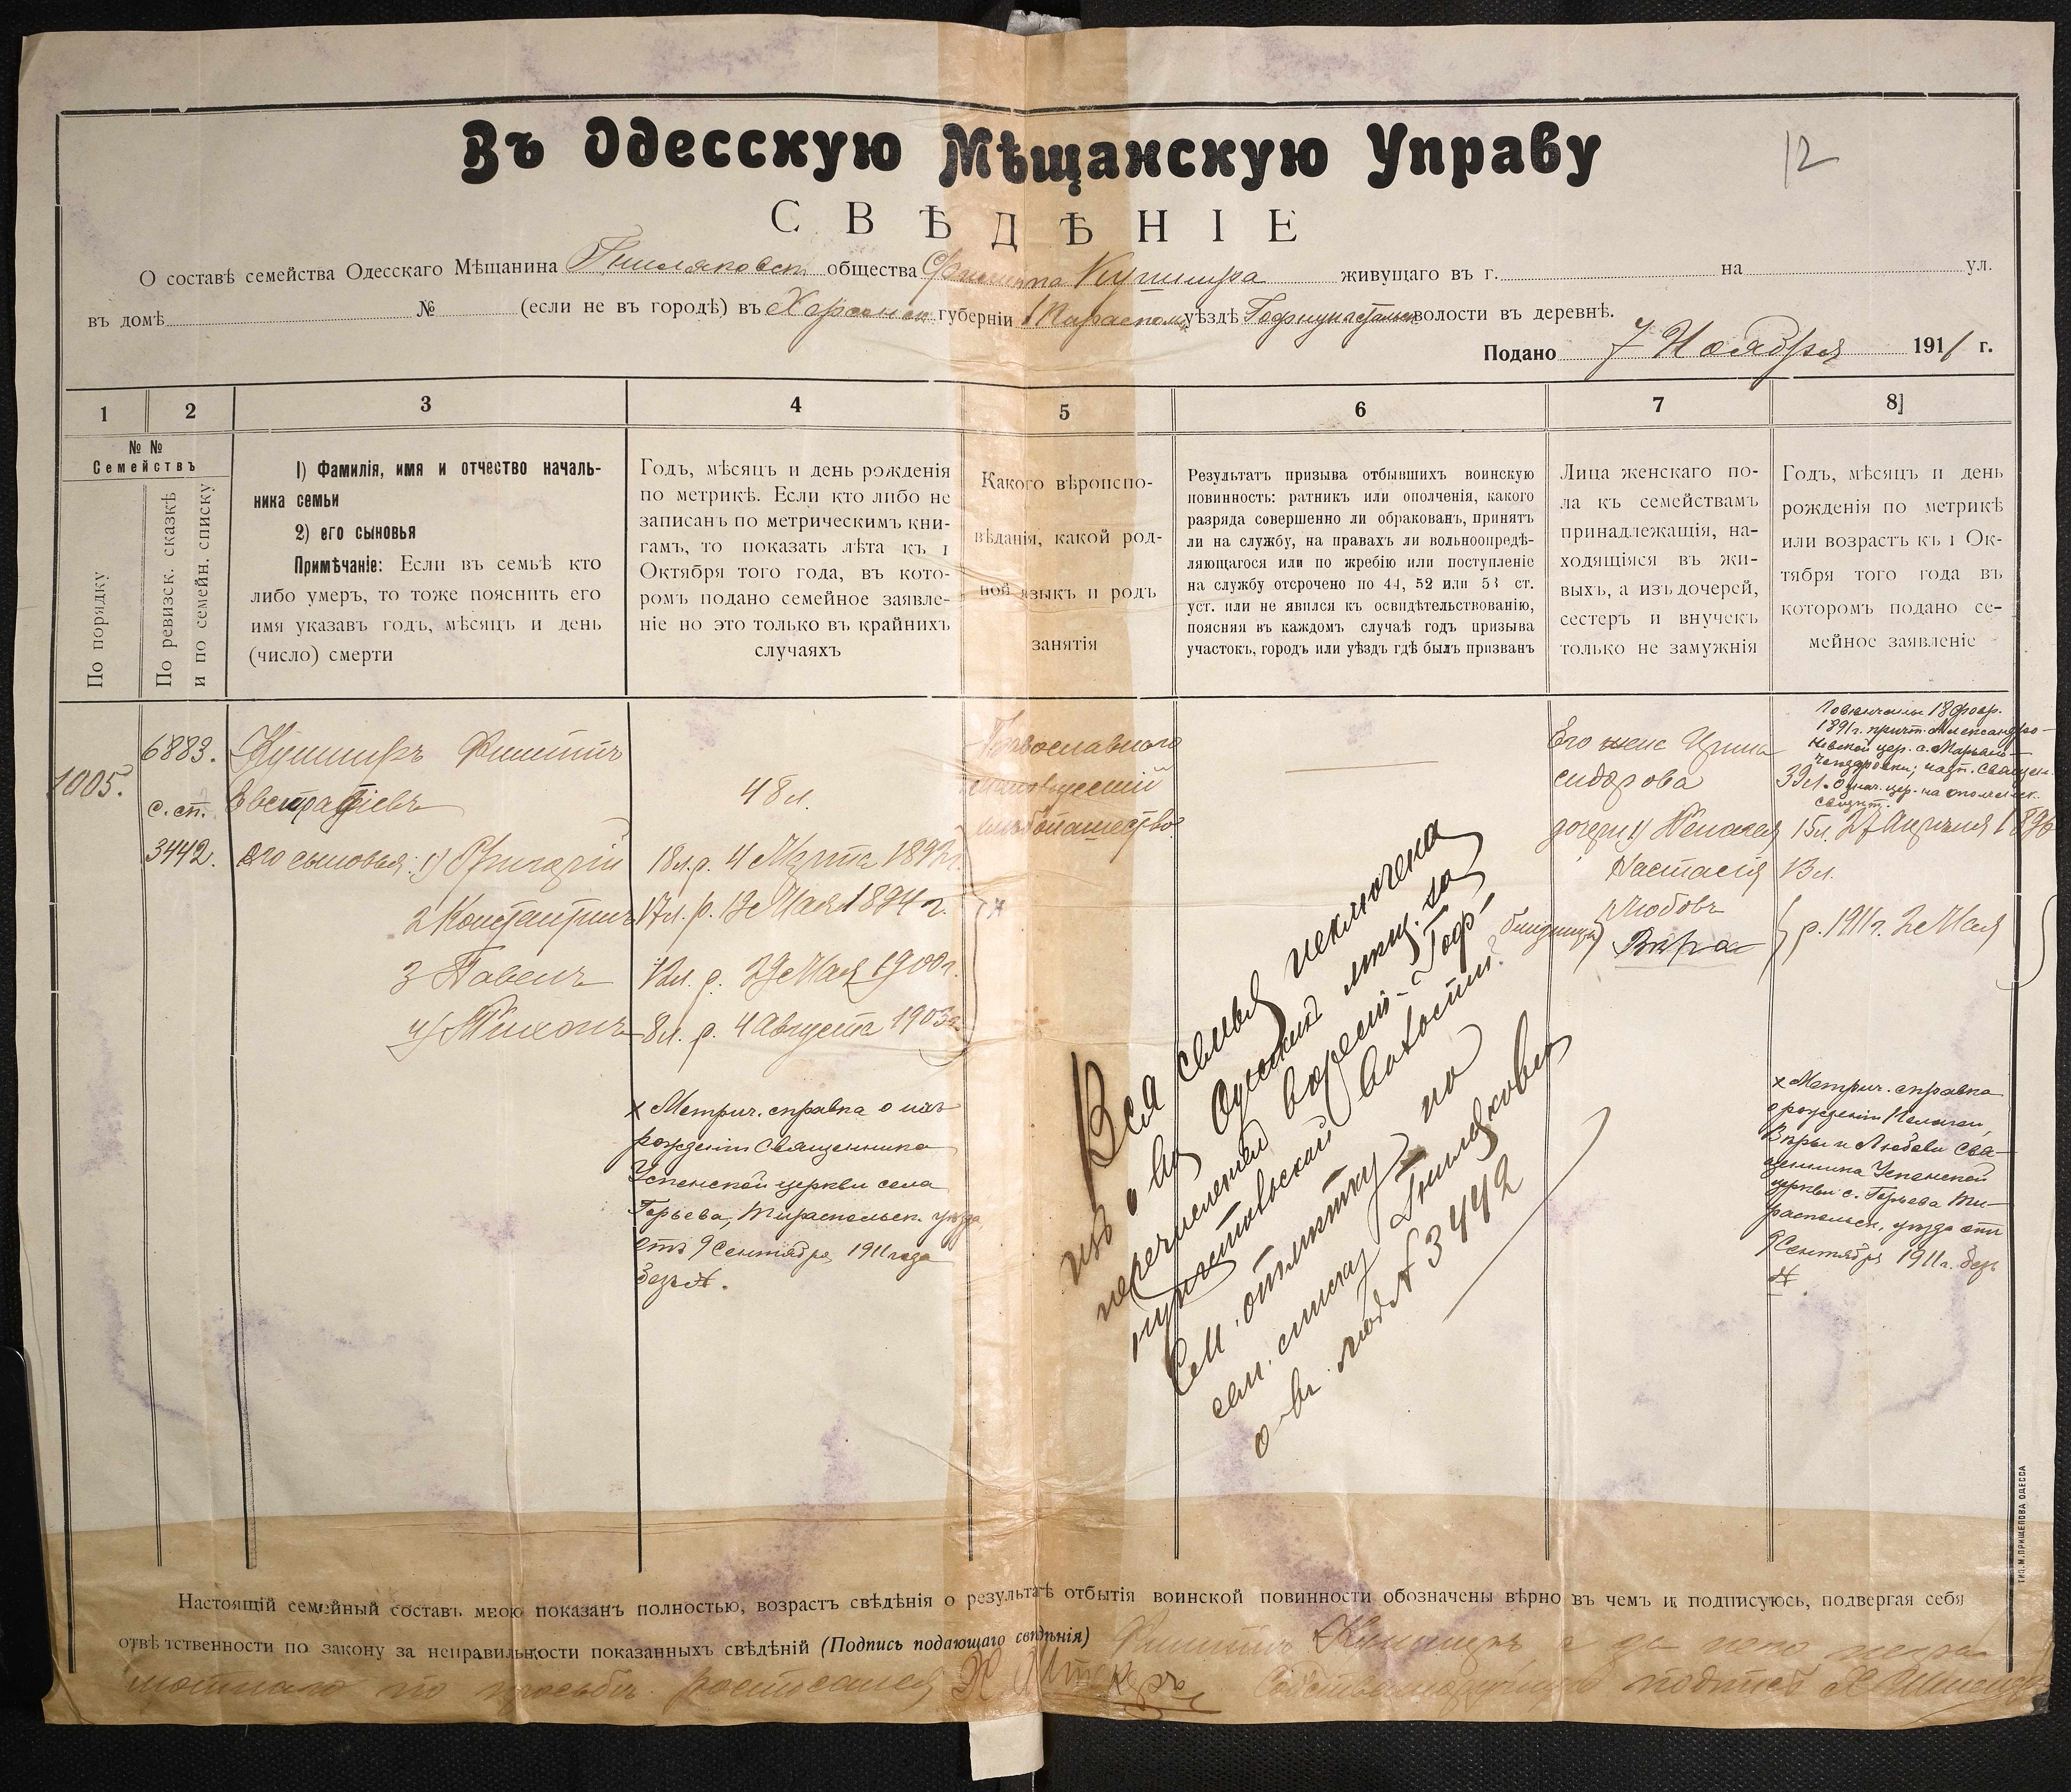 12
Въ Одесскую Мѣщанскую Управу
СВѢДѢНІЕ
О составѣ семейства Одесскаго Мѣщанина Гниляковск. общества Филиппа Кушнира живущаго въ г. на ул.
въ домѣ № (если не въ городѣ) въ Херсонск. губерніи Тираспольс. уѣздѣ волости въ деревнѣ.
Подано 7 Ноября 1911 г.
1 2 3 4 5 6 7 8
№ №
Семействъ
По порядку
По ревизск. сказкѣ
и по семейн. списку
1) Фамилія, имя и отчество началь-
ника семьи
2) его сыновья
Примѣчаніе: Если въ семьѣ кто
либо умеръ, то тоже пояснить его
имя указавъ годъ, мѣсяцъ и день
(число) смерти
Годъ, мѣсяцъ и день рожденія
по метрикѣ. Если кто либо не
записанъ по метрическимъ кни-
гамъ, то показать лѣта къ 1
Октября того года, въ кото-
ромъ подано семейное заявле-
ніе но это только въ крайнихъ
случаяхъ
Какого вѣроиспо-
вѣданія, какой род-
ной языкъ и родъ
занятія
Результатъ призыва отбывшихъ воинскую
повинность: ратникъ или ополченія, какого
разряда совершенно ли обракованъ, принятъ
ли на службу, на правахъ ли вольноопредѣ-
ляющагося или по жребію или поступленіе
на службу отсрочено по 44, 52 или 53 ст.
уст. или не явился къ освидѣтельствованію,
поясняя въ каждомъ случаѣ годъ призыва
участокъ, городъ или уѣздъ гдѣ былъ призванъ
Лица женскаго по-
ла къ семействамъ
принадлежащія, на-
ходящіяся въ жи-
выхъ, а изъ дочерей,
сестеръ и внучекъ
только не замужнія
Годъ, мѣсяцъ и день
рожденія по метрикѣ
или возрастъ къ 1 Ок-
тября того года въ
которомъ подано се-
мейное заявленіе
1005.
6883.
с. сп.
3442.
Кушниръ Филиппъ
Евстрафіевъ
его сыновья: 1) Григорій
2 Константинъ
3 Павелъ
4) Тихонъ
48 л.
18 л. р. 4 Марта 1892 г.
17 л. р. 13 Мая 1894 г.
12 л. р. 29 Мая 1900 г.
8 л. р. 4 Августа 1903 г.
х Метрич. справка о ихъ
рожденіи Священника
Успенской церкви села
Горьева, Тираспольск. уѣзда
отъ 9 Сентября 1911 года
безъ №.
Православнаго
малорусскій
хлѣбопашество
Вся семья исключена
изъ о-ва Одесскихъ мѣщ. за
перечисленіемъ
волости.
Сем. отмѣтку по
сем. списку Гниляковск.
о-ва подъ № 3442
Его жена Ирина
сидорова
дочери 1) Пелагея
Настасія
близнецы Любовь
Вѣра
Повѣнчаны 18 февр.
1891 г. причт. Александро-
Невской цер. с.
39 л.
15 л. 27 Апрѣля 1896
13 л.
р. 1911 г. 2 Мая
х Метрич. справка
о рожденіи Пелагеи,
Вѣры и Любови Свя-
щенника Успенской
церкви с. Горьева Ти-
распольск. уѣзда отъ
9 Сентября 1911 г. безъ
№
Настоящій семейный составъ мною показанъ полностью, возрастъ свѣдѣнія о результатѣ отбытія воинской повинности обозначены вѣрно въ чемъ и подписуюсь, подвергая себя
отвѣтственности по закону за неправильности показанныхъ свѣдѣній (Подпись подающаго свѣдѣнія) Филиппъ Кушниръ а за него негра-
мотнаго по просьбѣ росписался
ТИП. М. ПРИЩЕПОВА ОДЕССА